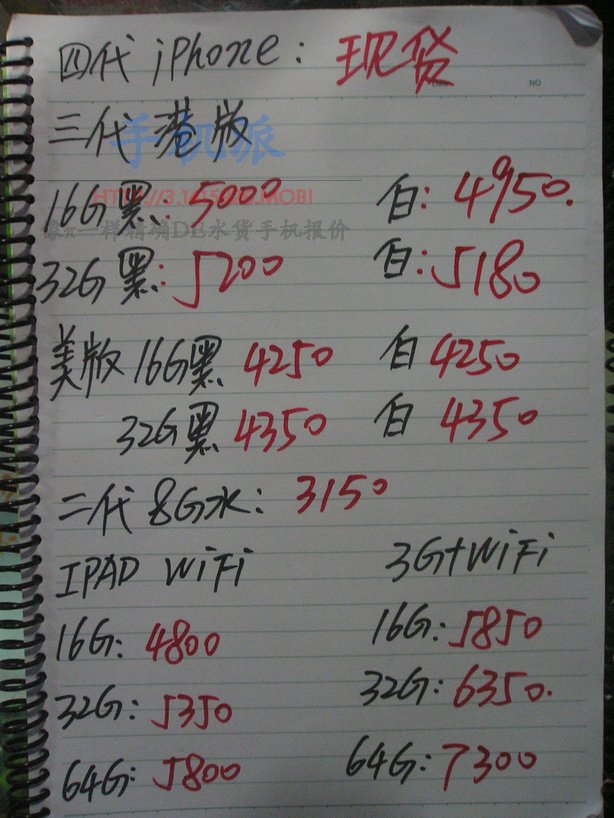 四代 iPhone: 现货
NO
三代港版
手机派
16G黑: 5000 白: 4950.
HTTP://3.1415.MOBI
像π一样精确DE水货手机报价
32G黑: 5200 白: 5180
美版 16G黑 4250 白 4250
32G黑 4350 白 4350
二代 8G水: 3150
IPAD WiFi 3G+WiFi
16G: 4800 16G: 5850
32G: 5350 32G: 6350.
64G: 5800 64G: 7300